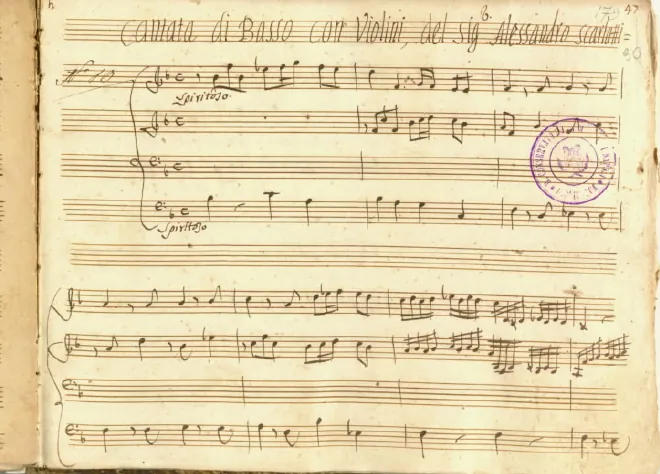 47
Cantata di Basso Con Violini, del Sig.r Alessandro Scarlatti =
90
N.o 10
Spiritoso.
Spiritoso